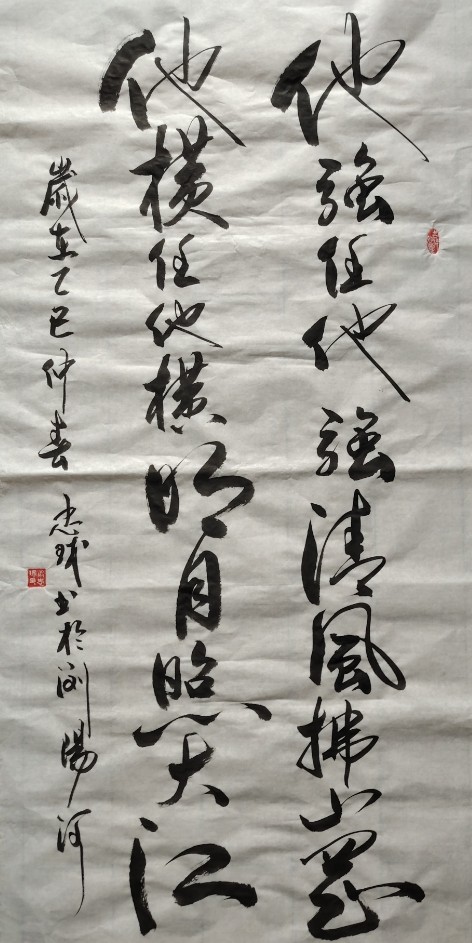 他強任他強清風拂山崗
他橫任他橫明月照大江
歲在乙巳仲春 忠球书於浏陽河